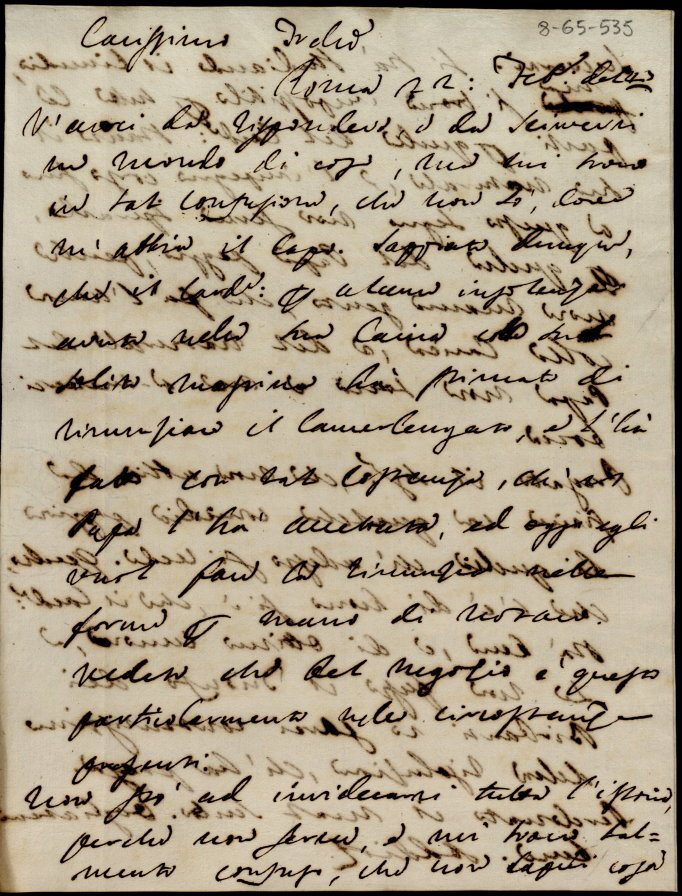 8-65-535
Carissimo Fratello
Roma 22: Feb.
V'avrei da rispondere e da scrivervi
un mondo di cose, ma mi trovo
in tal confusione, che non so, dove
m'abbia il Capo. Sappiate dunque,
che il Card: alcune insolenze
avute nella sua Carica
solito ha pensato di
rinunziare il Camerlengato, e l'ha
fatto con tal costanza, che il
Papa l'ha accettata, ed oggi egli
vuol fare la rinunzia nelle
forme mano di notaro.
vedete che bel negozio è questo
particolarmente nelle circostanze
presenti.
non sto ad individuarvi tutta l'istoria,
perché non serve, e mi trovo tal=
mente confuso, che non saprei cosa